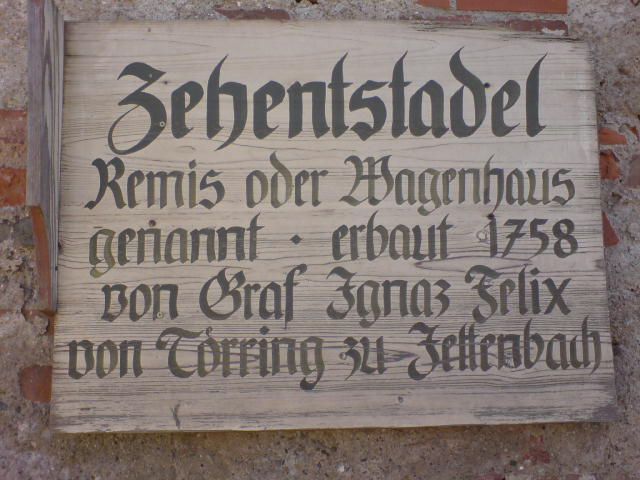 Zehentstadel
Remis oder Wagenhaus
genannt · erbaut 1758
von Graf Ignaz Felix
von Törring zu Jettenbach